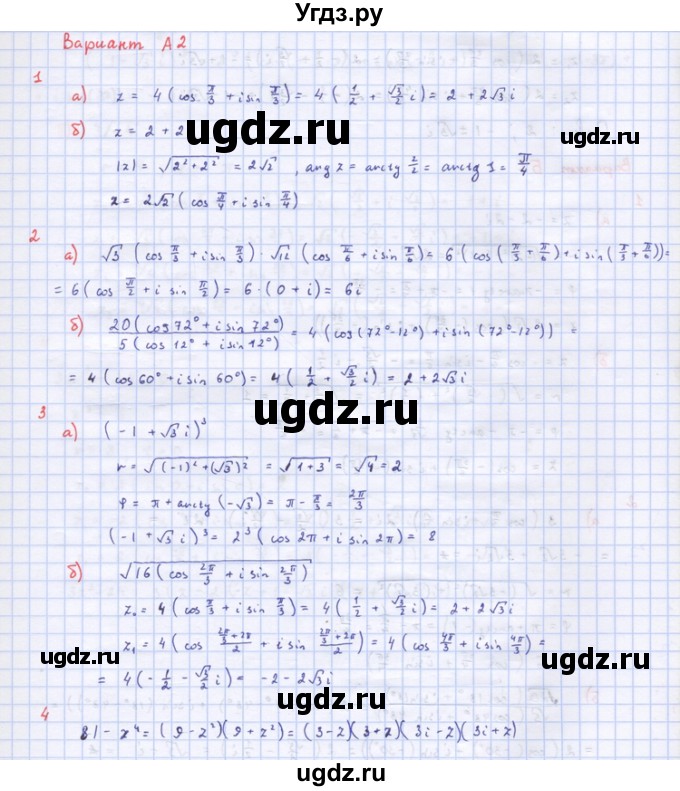 Угдз.ру
Вариант А2
1
а) z = 4(cos π/3 + i sin π/3) = 4(1/2 + √3/2 i) = 2 + 2√3 i
б) z = 2 + 2
ugdz.ru
|z| = √(2² + 2²) = 2√2, arg z = arctg 2/2 = arctg 1 = π/4
z = 2√2 (cos π/4 + i sin π/4)
2
а) √3 (cos π/3 + i sin π/3) · √12 (cos π/6 + i sin π/6) = 6(cos(π/3 + π/6) + i sin(π/3 + π/6)) =
= 6(cos π/2 + i sin π/2) = 6·(0 + i) = 6i
б) 20(cos 72° + i sin 72°)/5(cos 12° + i sin 12°) = 4(cos(72°-12°) + i sin(72°-12°)) =
= 4(cos 60° + i sin 60°) = 4(1/2 + √3/2 i) = 2 + 2√3 i
ugdz.ru
3
а) (-1 + √3 i)³
r = √((-1)² + (√3)²) = √(1+3) = √4 = 2
φ = π + arctg(-√3) = π - π/3 = 2π/3
ugdz.ru
(-1 + √3 i)³ = 2³(cos 2π + i sin 2π) = 8
б) √(16(cos 2π/3 + i sin 2π/3))
z₀ = 4(cos π/3 + i sin π/3) = 4(1/2 + √3/2 i) = 2 + 2√3 i
z₁ = 4(cos (2π/3 + 2π)/2 + i sin (2π/3 + 2π)/2) = 4(cos 4π/3 + i sin 4π/3) =
ugdz.ru ugdz.ru ugdz.ru
= 4(-1/2 - √3/2 i) = -2 - 2√3 i
4
81 - z⁴ = (9 - z²)(9 + z²) = (3 - z)(3 + z)(3i - z)(3i + z)
ugdz.ru